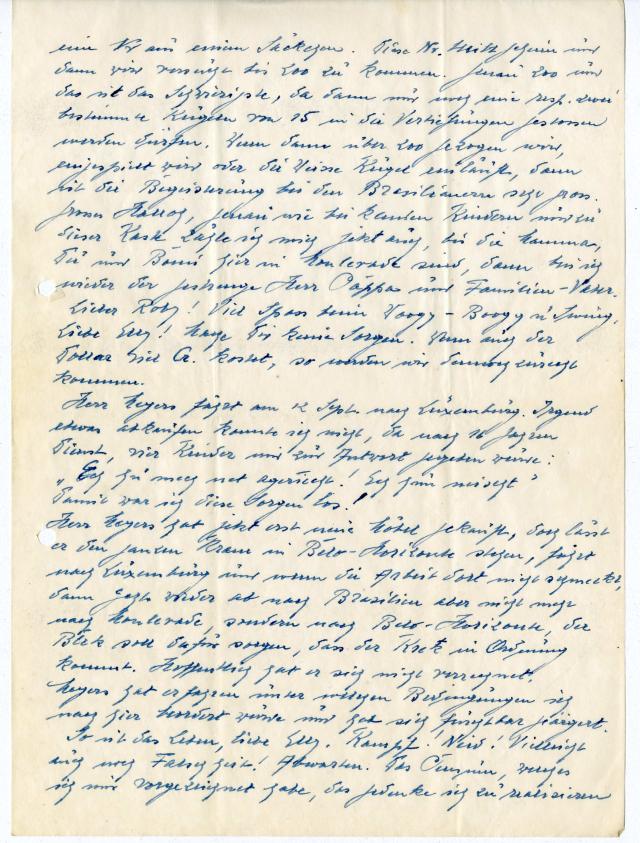 eine Nr aus einem Säckchen. Diese Nr. steht seinen und
dann wird versucht bis 200 zu kommen. Genau 200 und
das ist das Schwierigste, da dann nur noch eine resp. zwei
bestimmte Kugeln von 15 in die Vertiefungen gestossen
werden dürfen. Wenn dann über 200 gezogen wird,
eingespielt wird oder die Weisse Kugel einläuft, dann
ist die Begeisterung bei den Brasilianern sehr gross.
Grosses Hallog, genau wie bei kleinen Kindern und zu
dieser Kaste zähle ich mich jetzt auch, bis die Mamma,
Du und Bomi hier in Monlevade sind, dann bin ich
wieder der gestrenge Herr Pappa und Familien-Vater.
Lieber Roby! Viel Spass beim Woogy-Boogy u Swing.
Liebe Elly! habe Du keine Sorgen. Wenn auch der
Dollar viel Cr. kostet, so werden wir dennoch zurecht
kommen.
Herr Meyers fährt am 12 Sept. nach Luxemburg. Irgend
etwas abkaufen konnte ich nicht, da nach 16 Jahren
Dienst, vier Kinder mir zur Antwort gegeben wurde:
„Ech hu mech net ageriicht! Ech hun neischt"
Damit war ich diese Sorgen los!
Herr Meyers hat jetzt erst neue Möbel gekauft, doch lässt
er den ganzen Kram in Belo-Horizonte stehen, fährt
nach Luxemburg und wenn die Arbeit dort nicht schmeckt,
dann gehts wieder ab nach Brasilien aber nicht mehr
nach Monlevade, sondern nach Belo-Horizonte, der
Blek soll dafür sorgen, dass der Krek in Ordnung
kommt. Hoffentlich hat er sich nicht verrechnet.
Meyers hat erfahren unter welchen Bedingungen ich
nach hier beordert wurde und hat sich furchtbar geärgert.
So ist das Leben, liebe Elly. Kampf! Neid! Vielleicht
auch noch Falschheit! Abwarten. Das Pensum, welches
ich mir vorgezeichnet habe, das gedenke ich zu realisieren